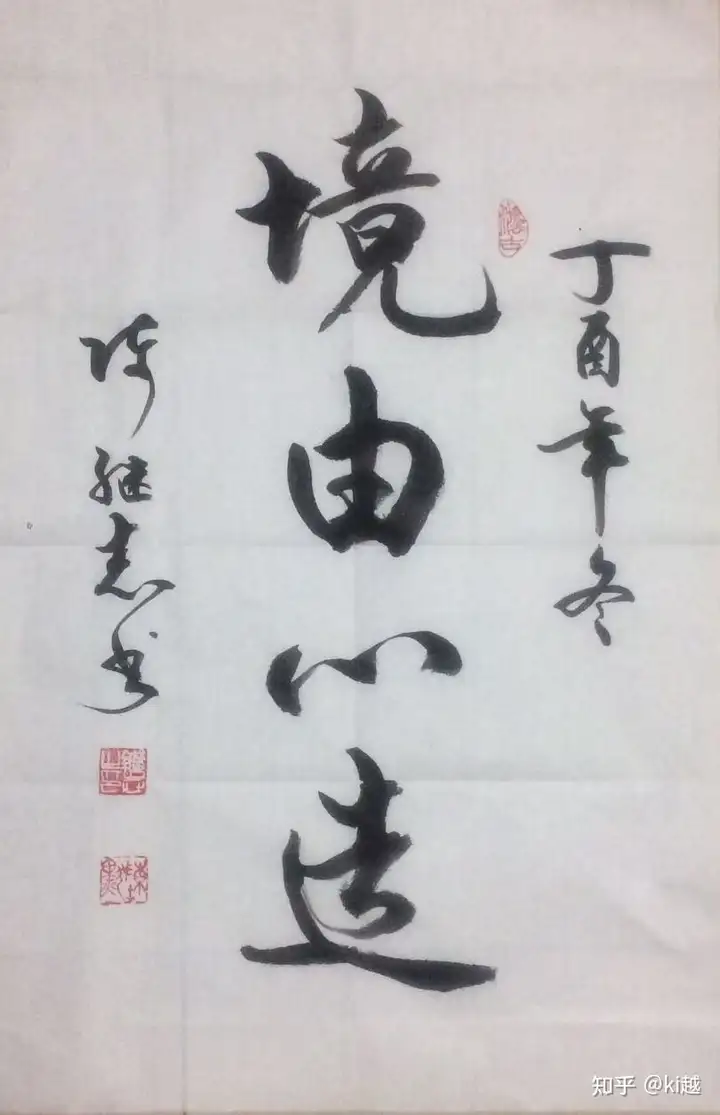 丁酉年冬
境由心造
陈继志书
知乎 @ki越